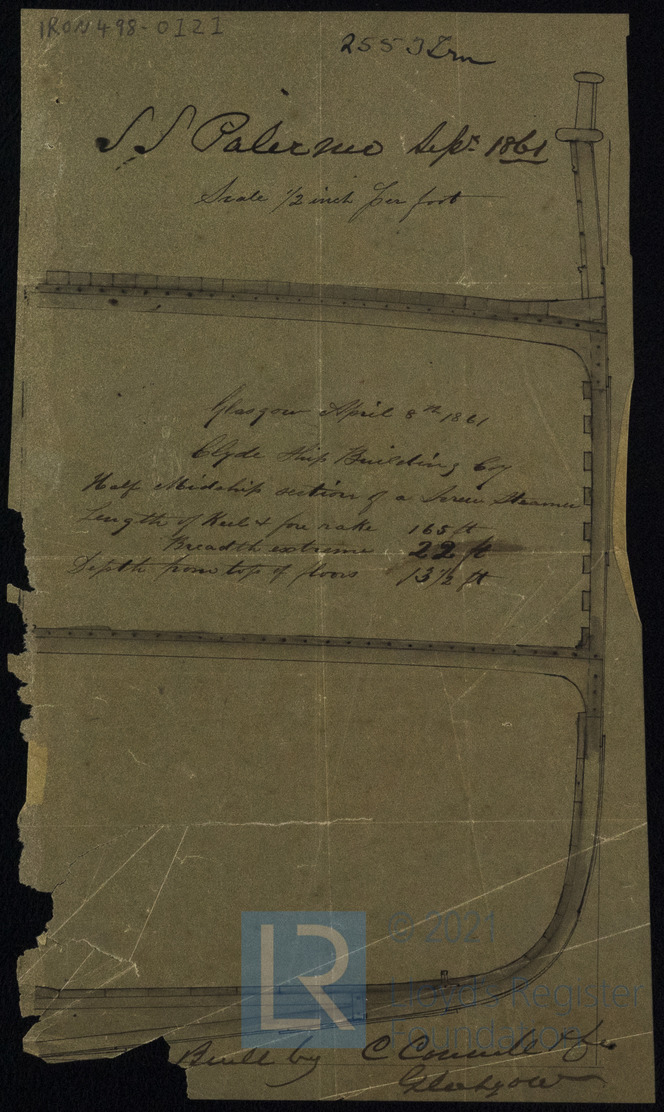 IRON498-0121
255 Irn
SS Palermo Sept. 1861
Scale 1/2 inch per foot
Glasgow April 8th 1861
Clyde Ship Building Coy
Half Midship section of a Screw Steamer
Length of Keel & fore rake 165 ft
Breadth extreme 22 ft
Depth from top of floors 13 1/2 ft
LR
© 2021
Lloyd's Register
Foundation
Built by C Connell & Co
Glasgow